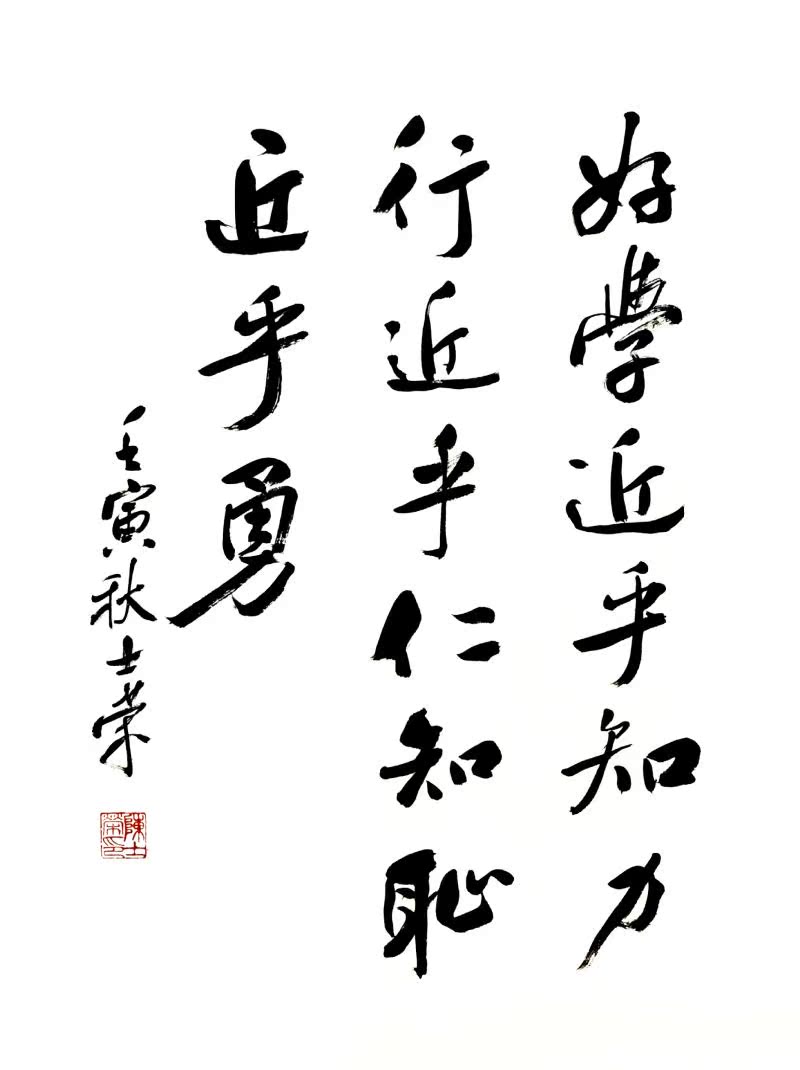 好學近乎知力
行近乎仁知恥
近乎勇
壬寅秋士荣
陳士榮印